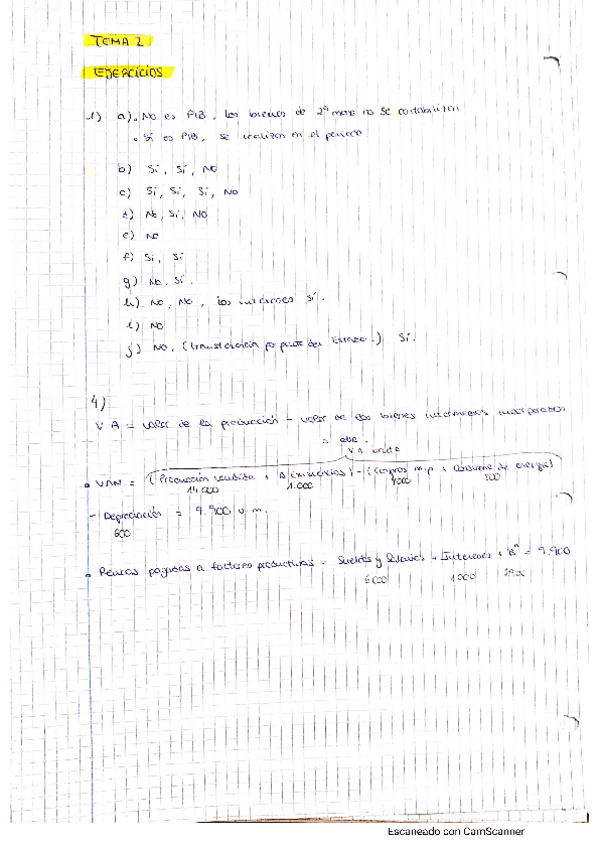 TEMA 2
EJERCICIOS
1) a) . No es PIB, los bienes de 2ª mano no se contabilizan
. Sí es PIB, se realizan en el periodo
b) Sí, Sí, NO
c) Sí, Sí, Sí, NO
d) No, Sí, NO
e) NO
f) Sí, Sí
g) No, Sí.
h) NO, NO, los intereses Sí.
i) NO
j) NO, (transferencia por parte del Estado.) Sí.
4)
VA = valor de la producción - valor de los bienes intermedios incorporados
VA
• VAN = (Producción vendida + Δ existencias) - (compras m.p + consumo de energía)
14.000 1.000 4000 500
- Depreciación = 9.900 u.m.
600
• Rentas pagadas a factores productivos = Sueldos y Salarios + Intereses + Bº = 9.900
6000 1000 2900
Escaneado con CamScanner